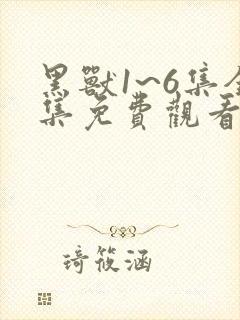 黑獸1~6集全
集免費觀看
琦筱涵